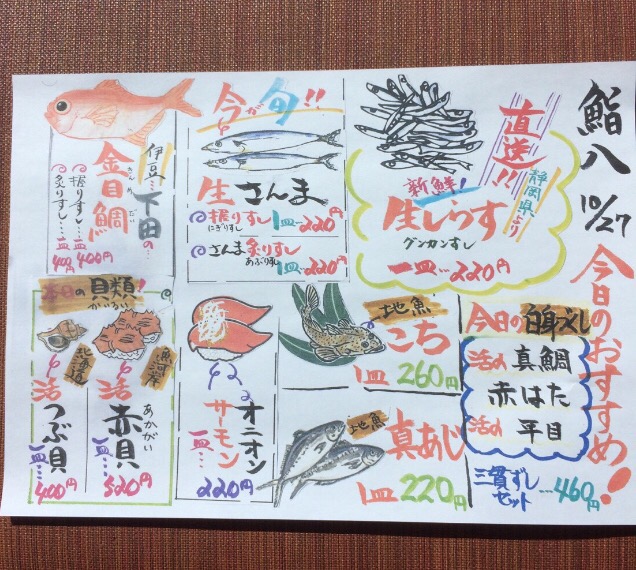 鮨八
10/27
今日のおすすめ!
静岡県より
直送!!
新鮮!
生しらす
グンカンずし
一皿…220円
今が旬!!
生さんま
握りずし 1皿…220円
にぎりずし
さんま炙りずし
あぶりずし
1皿…220円
伊豆…下田の…
金目鯛
きんめだい
握りずし…一皿…400円
炙りずし…一皿…400円
今日の白身づくし
活〆真鯛
赤はた
活〆平目
三貫ずしセット…460円
地魚
こち
1皿260円
地魚
真あじ
1皿220円
オニオン
サーモン
一皿…220円
本日の貝類!
かいるい
魚河岸
活赤貝
あかがい
一皿…520円
北海道
活つぶ貝
一皿…400円